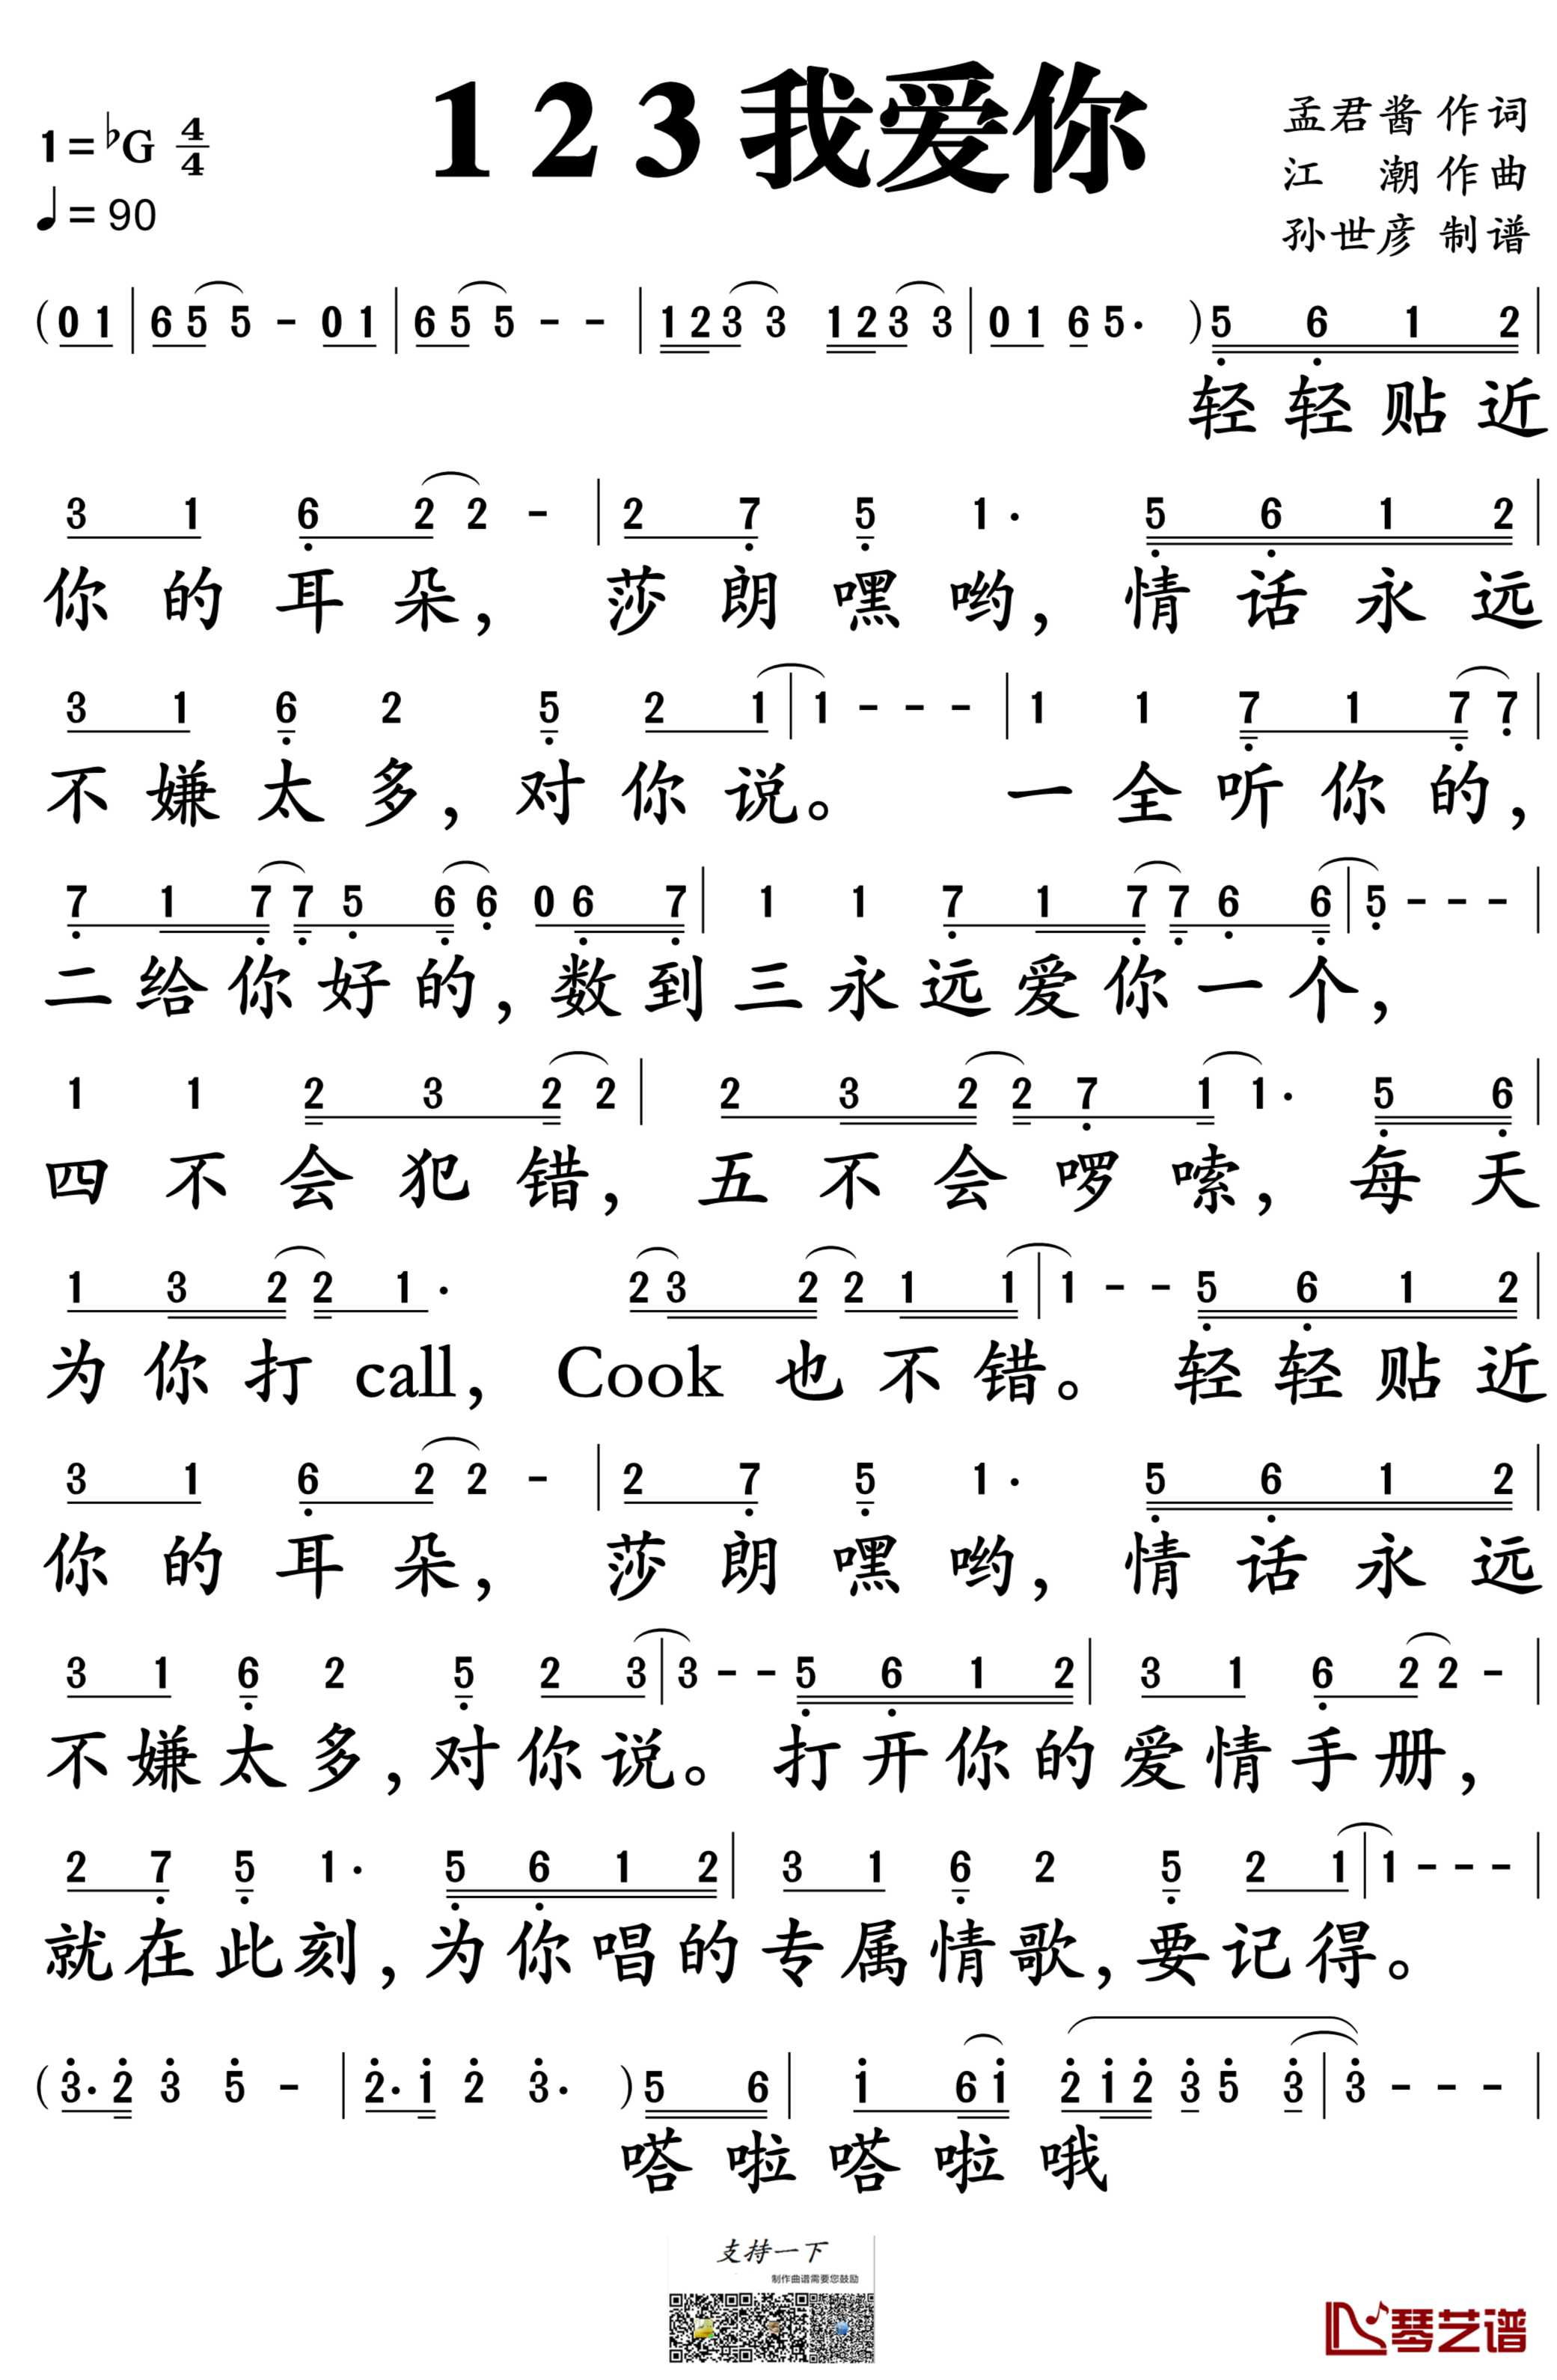 1 2 3 我爱你
1=♭G 4/4
♩= 90
孟君酱 作词
江 潮 作曲
孙世彦 制谱
(0 1 | 6 5 5 - 0 1 | 6 5 5 - - | 1 2 3 3 1 2 3 3 | 0 1 6 5· )5 6 1 2 |
轻 轻 贴 近
3 1 6 2 2 - | 2 7 5 1· 5 6 1 2 |
你 的 耳 朵， 莎 朗 嘿 哟， 情 话 永 远
3 1 6 2 5 2 1 | 1 - - - | 1 1 7 1 7 7 |
不 嫌 太 多， 对 你 说。 一 全 听 你 的，
7 1 7 7 5 6 6 0 6 7 | 1 1 7 1 7 7 6 6 | 5 - - - |
二 给 你 好 的， 数 到 三 永 远 爱 你 一 个，
1 1 2 3 2 2 | 2 3 2 2 7 1 1· 5 6 |
四 不 会 犯 错， 五 不 会 啰 嗦， 每 天
1 3 2 2 1· 2 3 2 2 1 1 | 1 - - 5 6 1 2 |
为 你 打 call， Cook 也 不 错。 轻 轻 贴 近
3 1 6 2 2 - | 2 7 5 1· 5 6 1 2 |
你 的 耳 朵， 莎 朗 嘿 哟， 情 话 永 远
3 1 6 2 5 2 3 | 3 - - 5 6 1 2 | 3 1 6 2 2 - |
不 嫌 太 多， 对 你 说。 打 开 你 的 爱 情 手 册，
2 7 5 1· 5 6 1 2 | 3 1 6 2 5 2 1 | 1 - - - |
就 在 此 刻， 为 你 唱 的 专 属 情 歌， 要 记 得。
(3· 2 3 5 - | 2· 1 2 3· )5 6 | 1 6 1 2 1 2 3 5 3 | 3 - - - |
嗒 啦 嗒 啦 哦
支持一下
制作曲谱需要您鼓励
琴艺谱